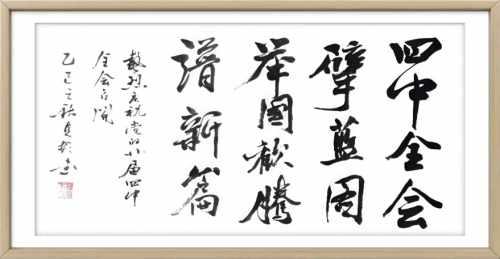 四中全会
擘蓝图
举國歡腾
谱新篇
热烈庆祝党的廿届四中
全会召开
乙巳之秋
书